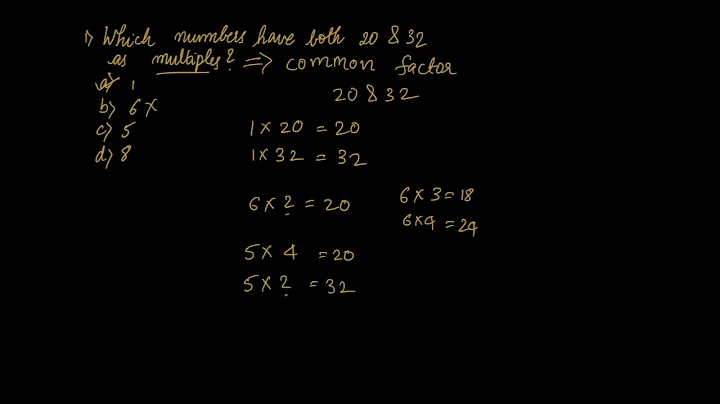 1) Which numbers have both 20 & 32
as multiples? => common factor
a) 1
20 & 32
b) 6 X
c) 5
1 X 20 = 20
d) 8
1 X 32 = 32
6 X ? = 20
6 X 3 = 18
6 X 4 = 24
5 X 4 = 20
5 X ? = 32